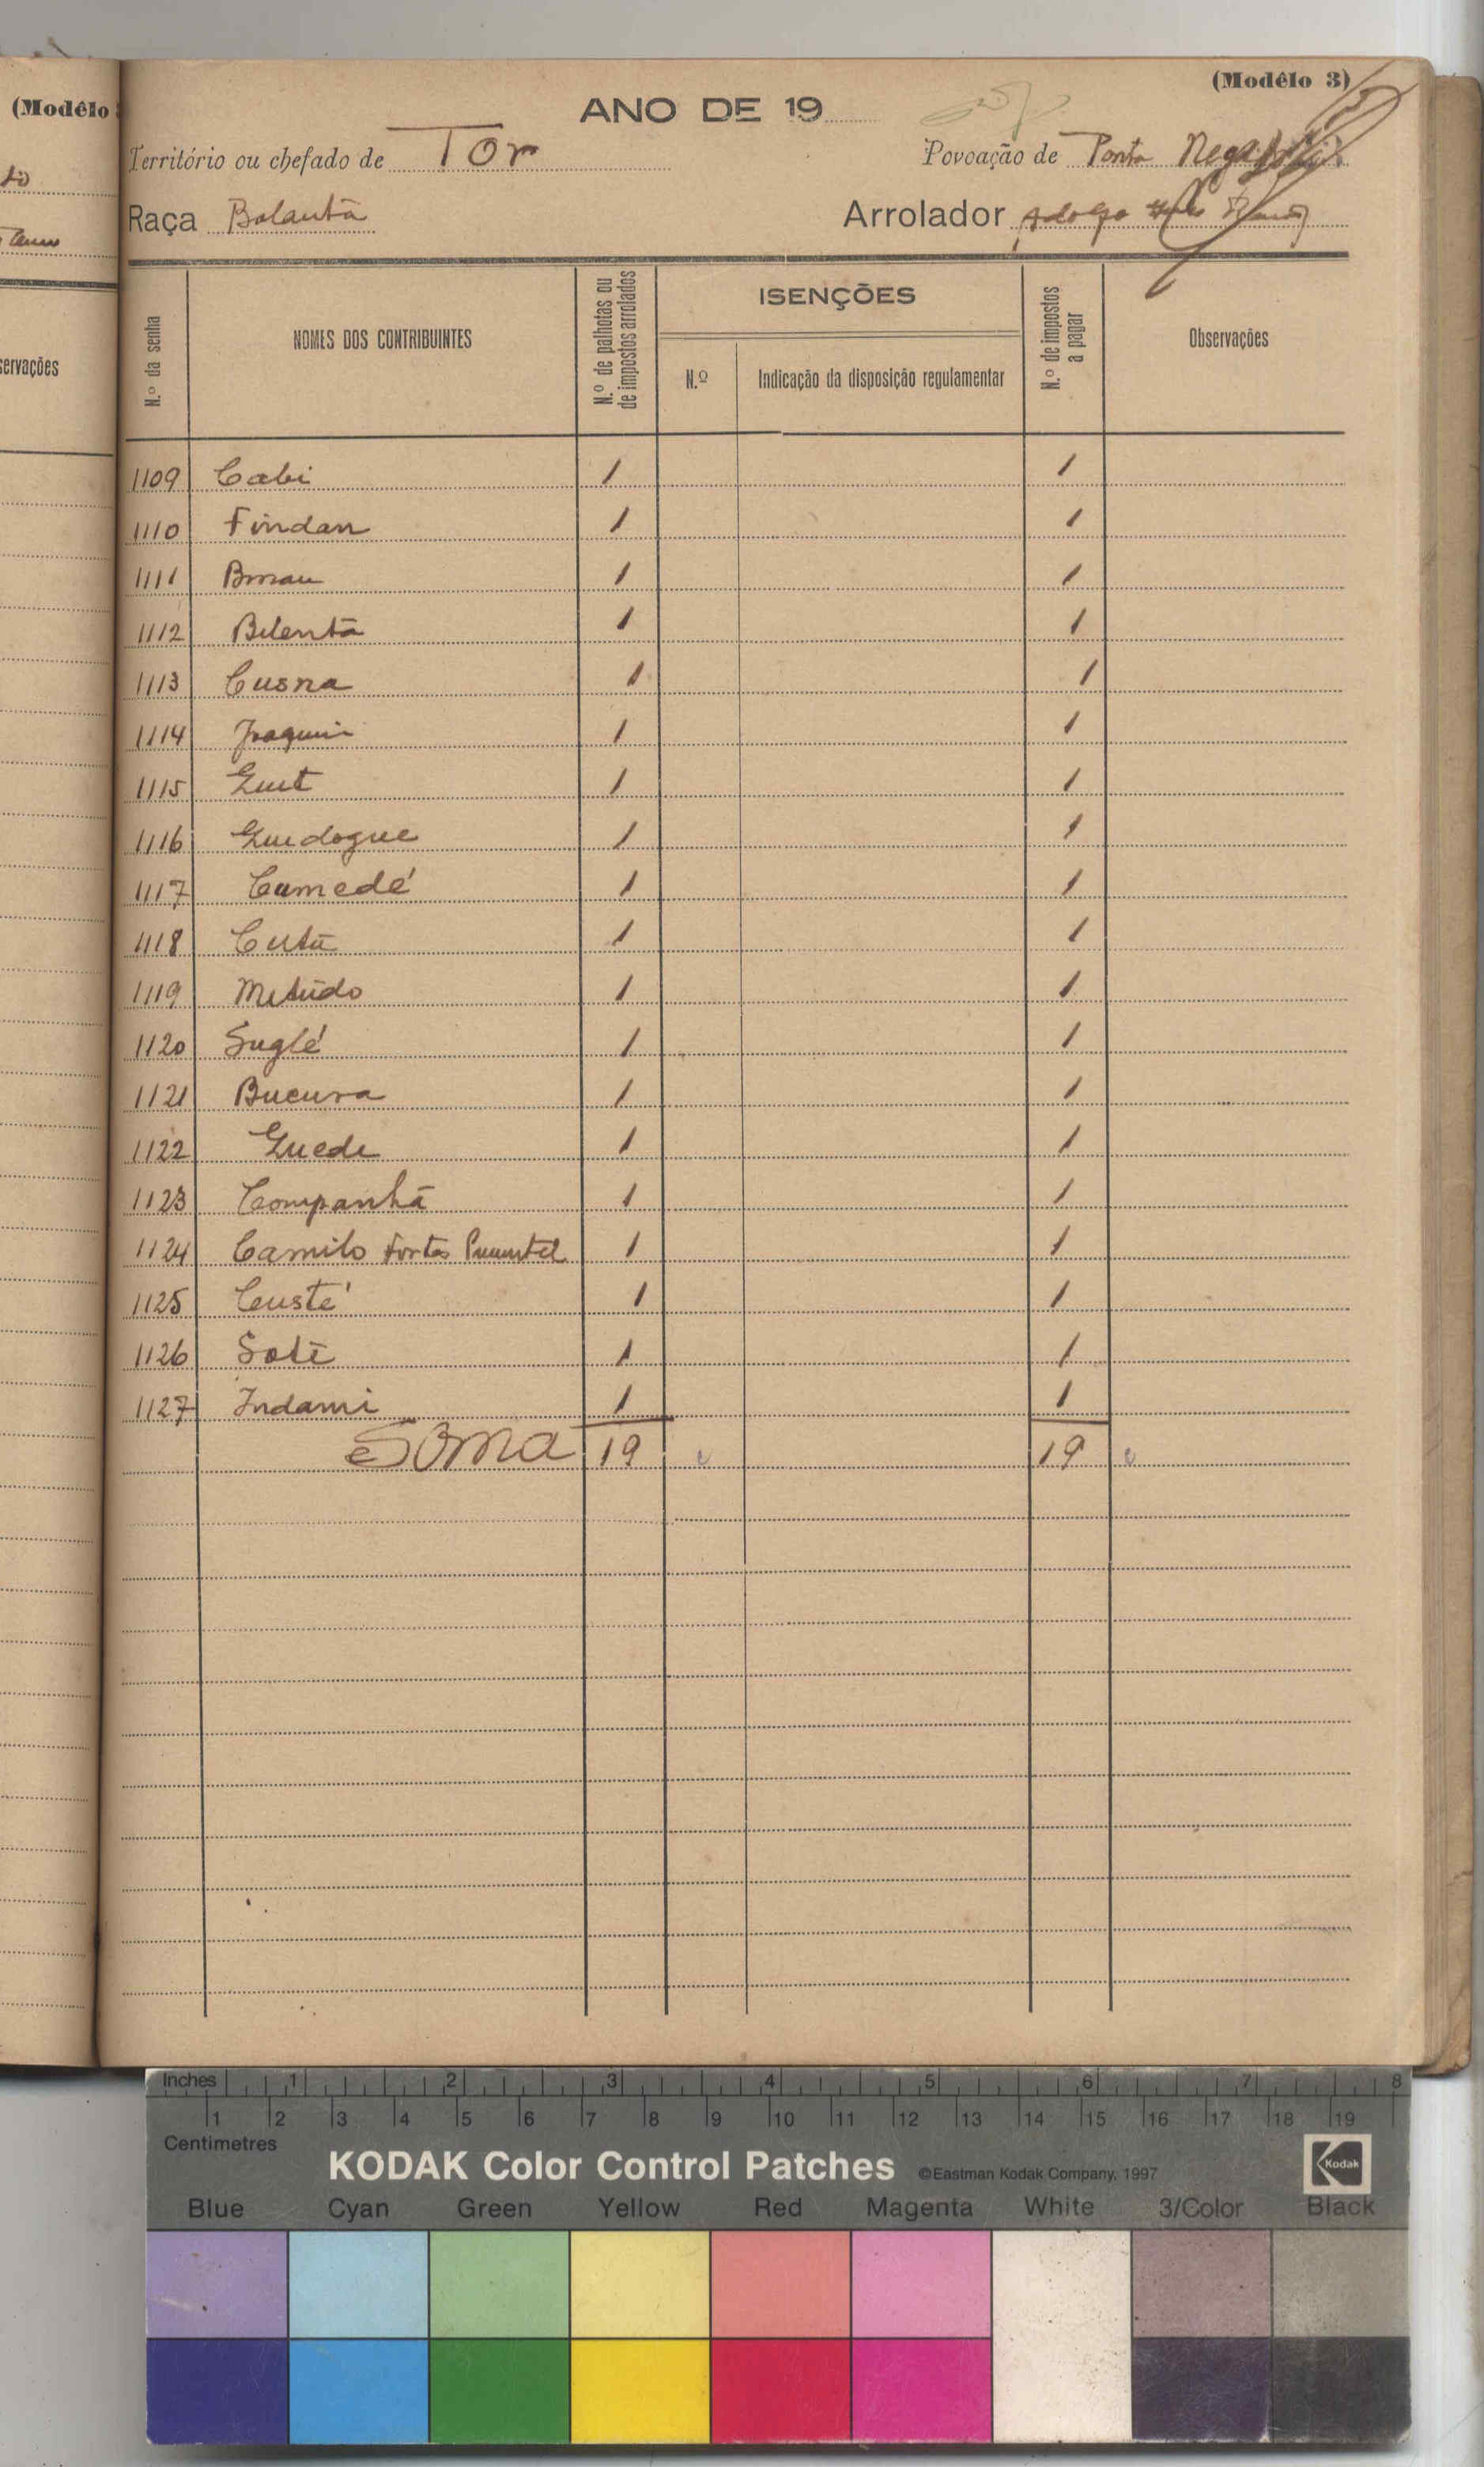 (Modêlo
(Modêlo 3)
ANO DE 19
Território ou chefado de Tor
Povoação de Ponta
Raça Balantã
Arrolador Adolfo
servações
N.º da senha
NOMES DOS CONTRIBUINTES
N.º de palhotas ou de impostos arrolados
ISENÇÕES
N.º
Indicação da disposição regulamentar
N.º de impostos a pagar
Observações
1109 Cabi 1 1
1110 Findan 1 1
1111 1 1
1112 Bilentã 1 1
1113 Cusna 1 1
1114 Joaquim 1 1
1115 Guit 1 1
1116 Guidogue 1 1
1117 Cumedé 1 1
1118 Cutū 1 1
1119 Mitúdo 1 1
1120 Suglé 1 1
1121 Bucura 1 1
1122 Guede 1 1
1123 Companhã 1 1
1124 Camilo Fortes 1 1
1125 Custé 1 1
1126 Soti 1 1
1127 Indami 1 1
Soma 19 19
Inches 1 2 3 4 5 6 7 8
1 2 3 4 5 6 7 8 9 10 11 12 13 14 15 16 17 18 19
Centimetres
KODAK Color Control Patches ©Eastman Kodak Company, 1997 Kodak
Blue Cyan Green Yellow Red Magenta White 3/Color Black